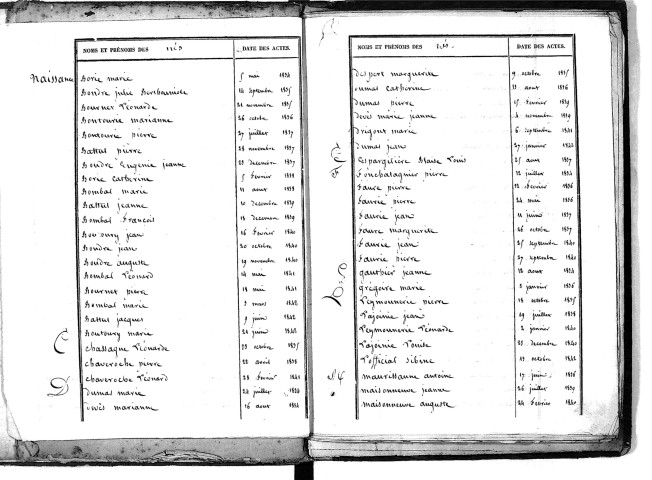 NOMS ET PRÉNOMS DES nés DATE DES ACTES.
Naissance
Borie marie 5 mai 1834
Bondre julie 12 septembre 1835
Bournet Léonarde 21 novembre 1835
Bontourie marianne 26 octobre 1836
Bontourie pierre 27 juillet 1837
Battut pierre 28 novembre 1837
Bondre Eugénie jeanne 23 decembre 1837
Borie catherine 5 fevrier 1838
Bombal marie 11 aout 1838
Battut jeanne 10 decembre 1839
Bombal françois 18 decembre 1839
jean 16 fevrier 1840
Bondre jean 20 octobre 1840
Bondre auguste 29 novembre 1840
Bombal Léonard 14 mai 1841
Bournet pierre 18 mai 1841
Bombal marie 2 mars 1842
Battut jacques 9 juin 1842
Boutoury marie 21 juin 1842
C
chassaque Léonarde 23 octobre 1835
chaveroche pierre 22 avril 1838
chaveroche Léonard 28 fevrier 1841
D
Dumas marie 24 juillet 1834
Devès marianne 16 aout 1834
NOMS ET PRÉNOMS DES nés DATE DES ACTES.
Despert marguerite 9 octobre 1835
Dumas catherine 11 aout 1836
Dumas pierre 15 fevrier 1839
Devès marie jeanne 4 novembre 1839
marie 6 septembre 1841
Dumas jean 27 janvier 1842
Blaise Louis 25 aout 1837
pierre 12 juillet 1834
faure pierre 12 fevrier 1836
faurie pierre 24 mai 1836
faurie jean 11 juin 1837
faure marguerite 26 octobre 1837
faurie jean 25 septembre 1840
faurie pierre 27 septembre 1840
G
gauthier jeanne 18 aout 1834
grégoire marie 2 janvier 1836
L
Leymounerie pierre 18 octobre 1835
Lajoinie jean 29 juillet 1838
Leymounerie Léonarde 2 janvier 1840
Lajoinie Louise 23 decembre 1840
L'official 19 octobre 1842
M
maurissanne antoine 17 juin 1836
maisonneuve jeanne 26 juillet 1839
maisonneuve auguste 24 fevrier 1840